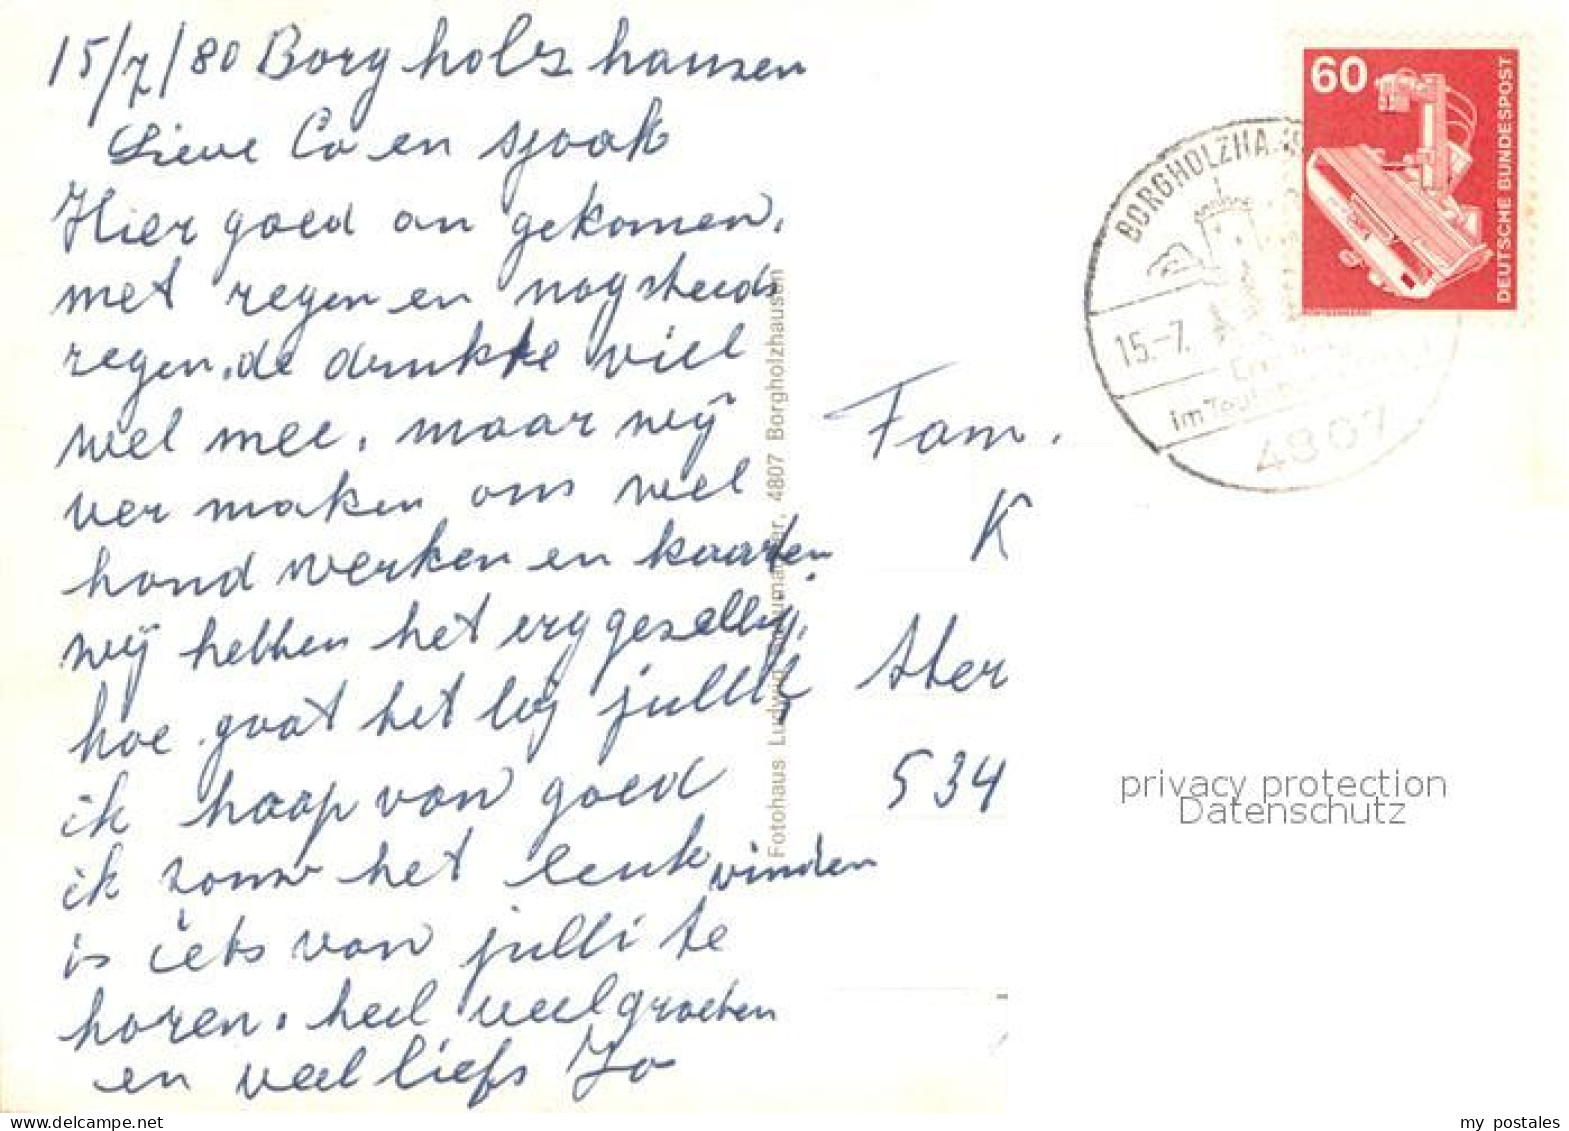 15/7/80 Borgholzhausen
Lieve Co en Sjaak
Hier goed an gekomen,
met regen en nog steeds
regen. de drukte viel
wel mee, maar wij
ver maken ons wel
hand werken en kaarten
wij hebben het erg gezellig.
hoe gaat het bij jullie
ik hoop van goed
ik zouw het leuk vinden
is iets van julli te
horen. heel veel groeten
en veel liefs Jo
Fotohaus Ludwig 4807 Borgholzhausen
60
DEUTSCHE BUNDESPOST
BORGHOLZHA
15.-7.
im
4807
Fam.
K
Ster
534
privacy protection
Datenschutz
delcampe.net
my_postales